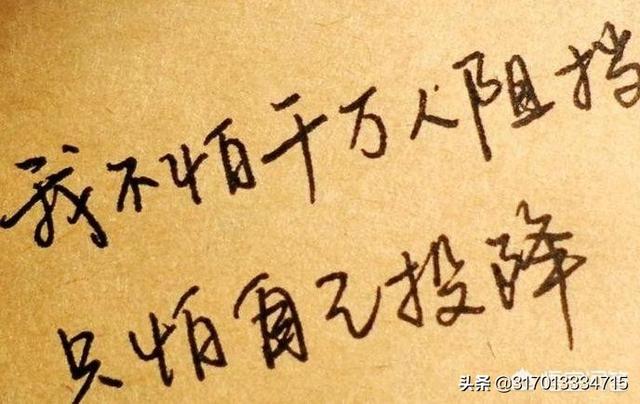 我不怕千万人阻挡
只怕自己投降
头条 @317013334715